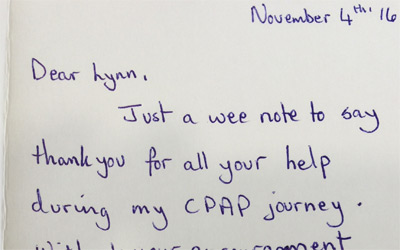 November 4th. '16
Dear Lynn,
Just a wee note to say
thank you for all your help
during my CPAP journey.